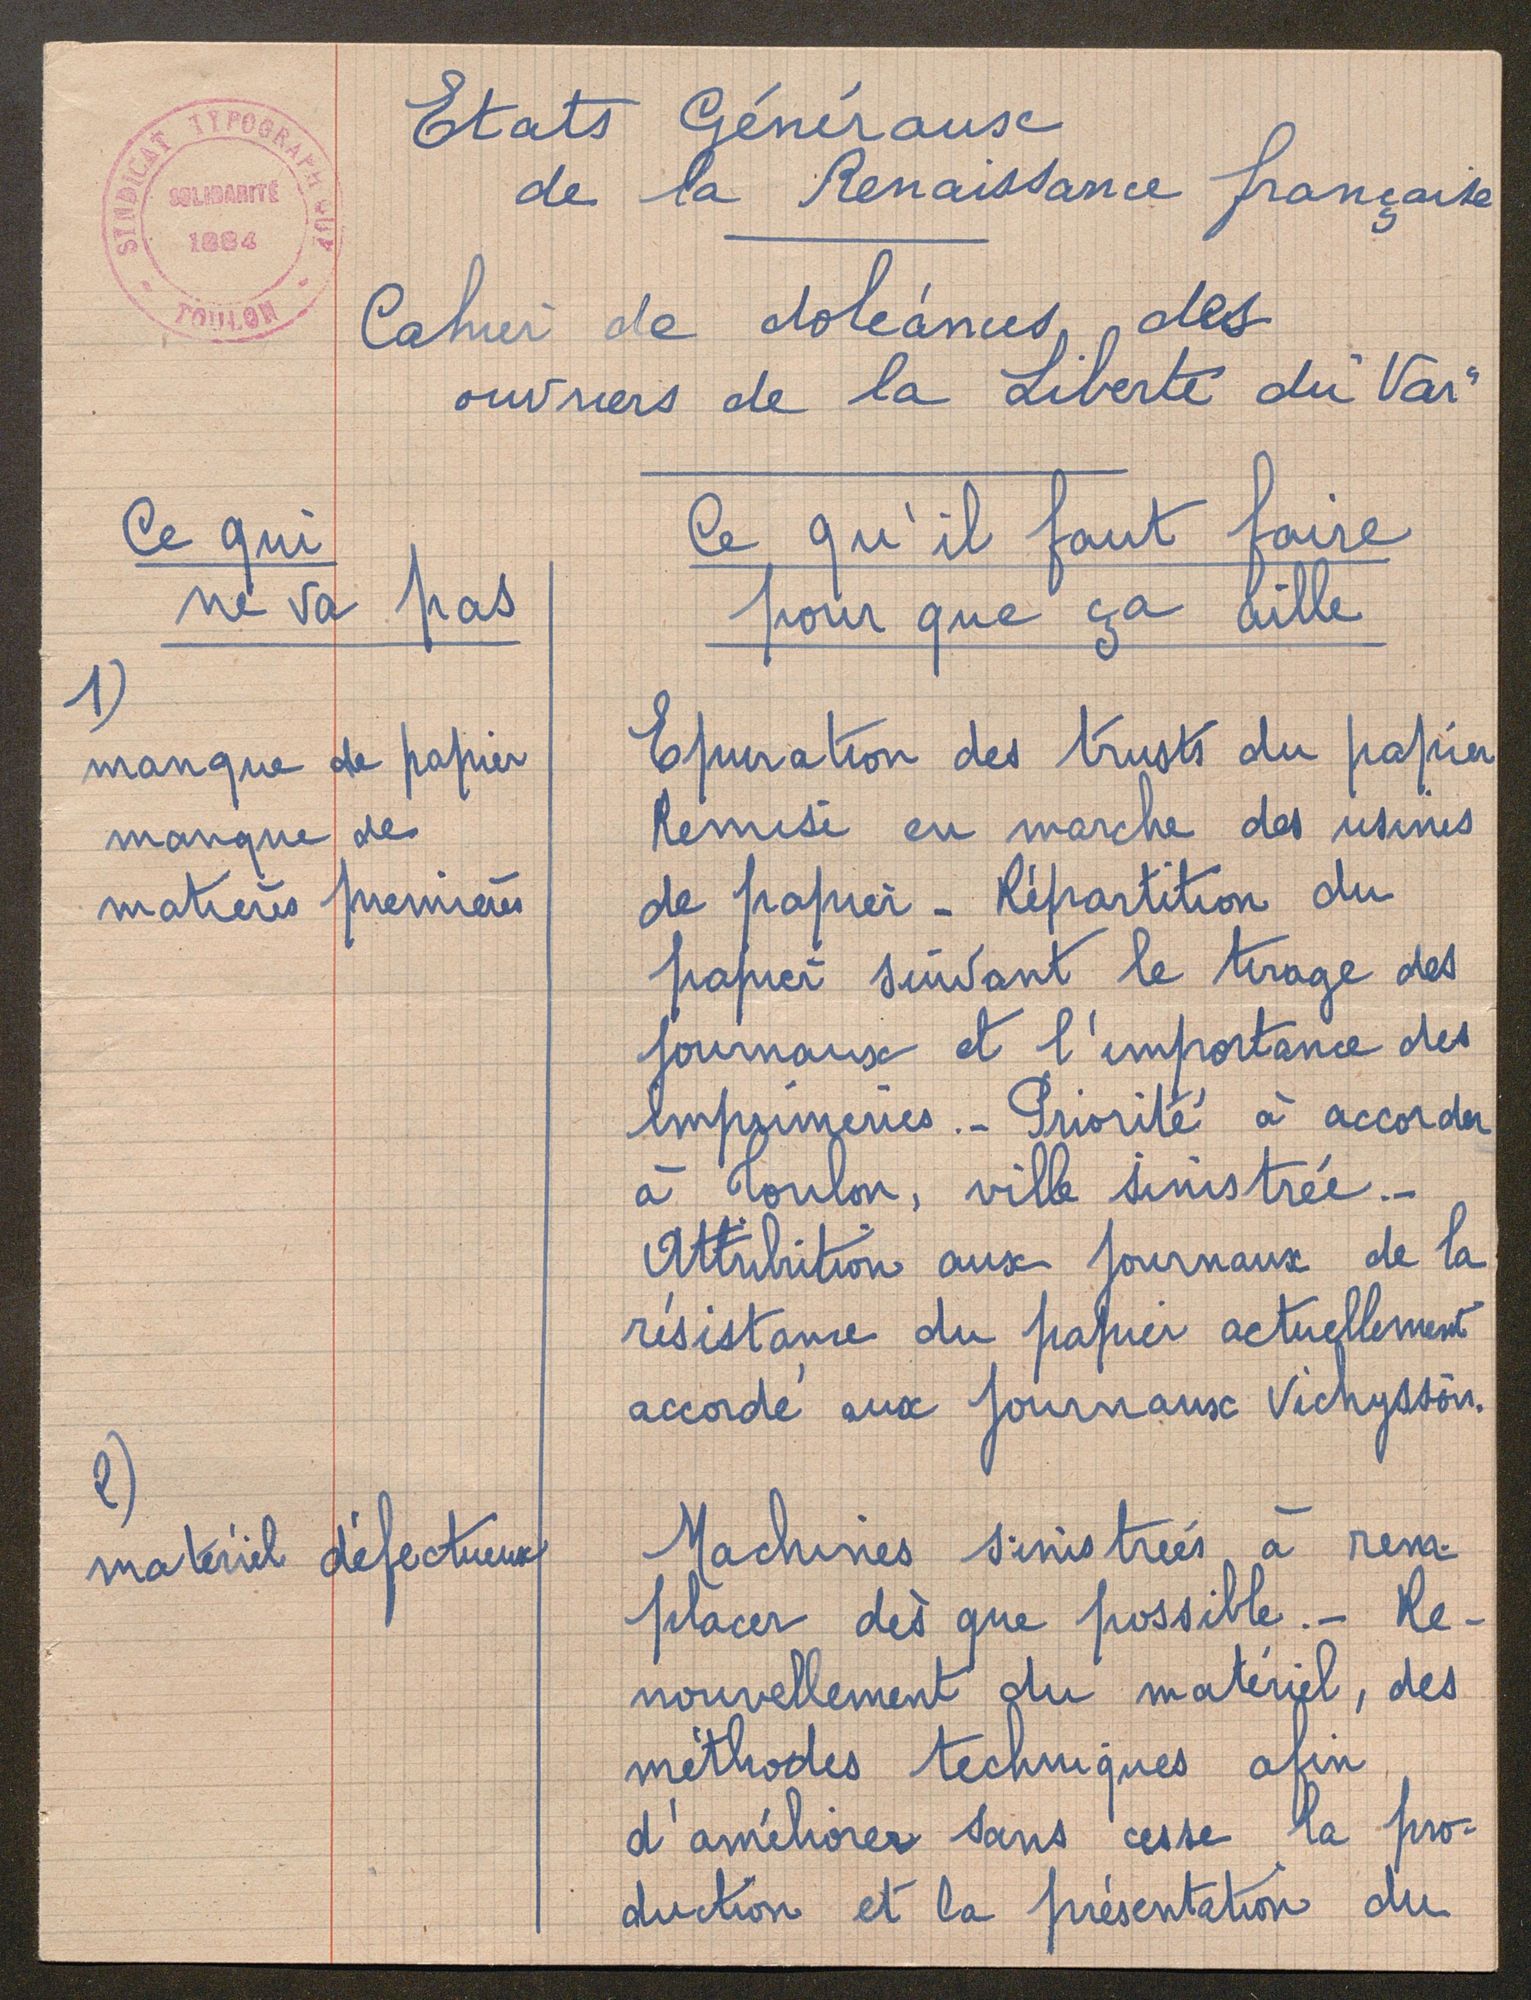 SINDICAT TYPOGRAPHIQUE
SOLIDARITÉ
1884
- TOULON -
Etats Généraux
de la Renaissance française
Cahier de doléances des
ouvriers de la Liberté du "Var"
Ce qui
ne va pas
Ce qu'il faut faire
pour que ça aille
1)
manque de papier
manque de
matières premières
Epuration des trusts du papier
Remise en marche des usines
de papier - Répartition du
papier suivant le tirage des
journaux et l'importance des
imprimeries.- Priorité à accorder
à Toulon, ville sinistrée.-
Attribution aux journaux de la
résistance du papier actuellement
accordé aux journaux Vichyssois.
2)
matériel défectueux
Machines sinistrées à rem-
placer dès que possible.- Re-
nouvellement du matériel, des
méthodes techniques afin
d'améliorer sans cesse la pro-
duction et la présentation du